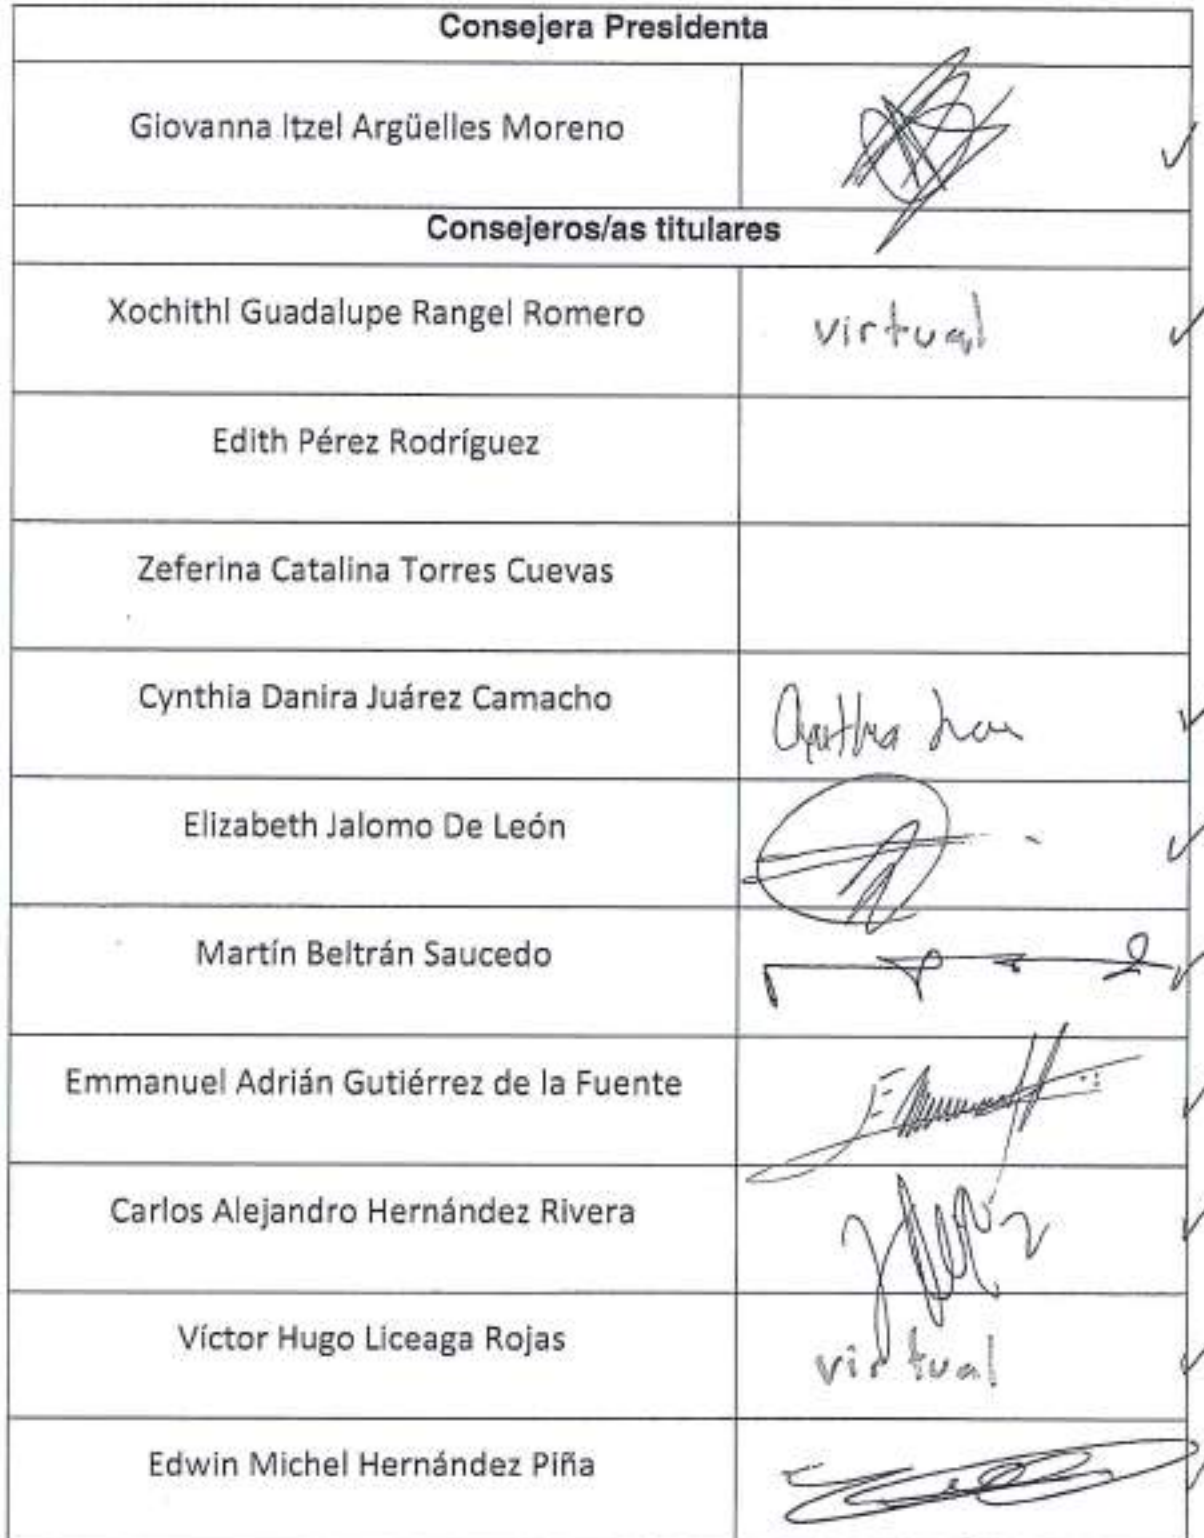 Consejera Presidenta
Giovanna Itzel Argüelles Moreno
✓
Consejeros/as titulares
Xochithl Guadalupe Rangel Romero
virtual ✓
Edith Pérez Rodríguez
Zeferina Catalina Torres Cuevas
Cynthia Danira Juárez Camacho
✓
Elizabeth Jalomo De León
✓
Martín Beltrán Saucedo
✓
Emmanuel Adrián Gutiérrez de la Fuente
✓
Carlos Alejandro Hernández Rivera
✓
Víctor Hugo Liceaga Rojas
virtual ✓
Edwin Michel Hernández Piña
✓